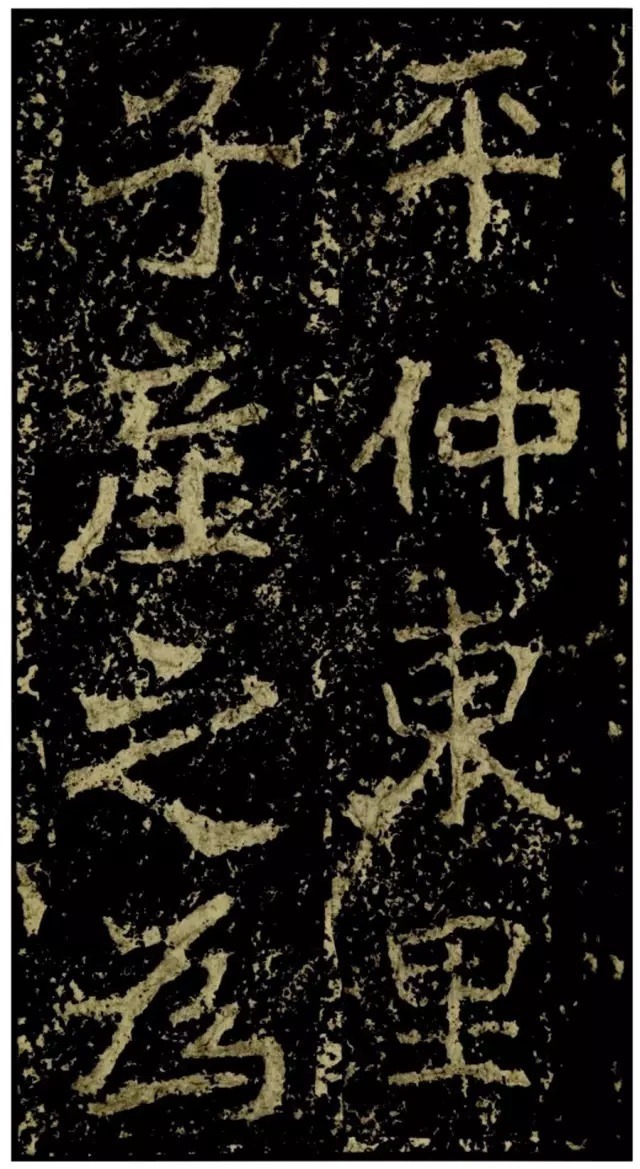 平仲東里
子產之為